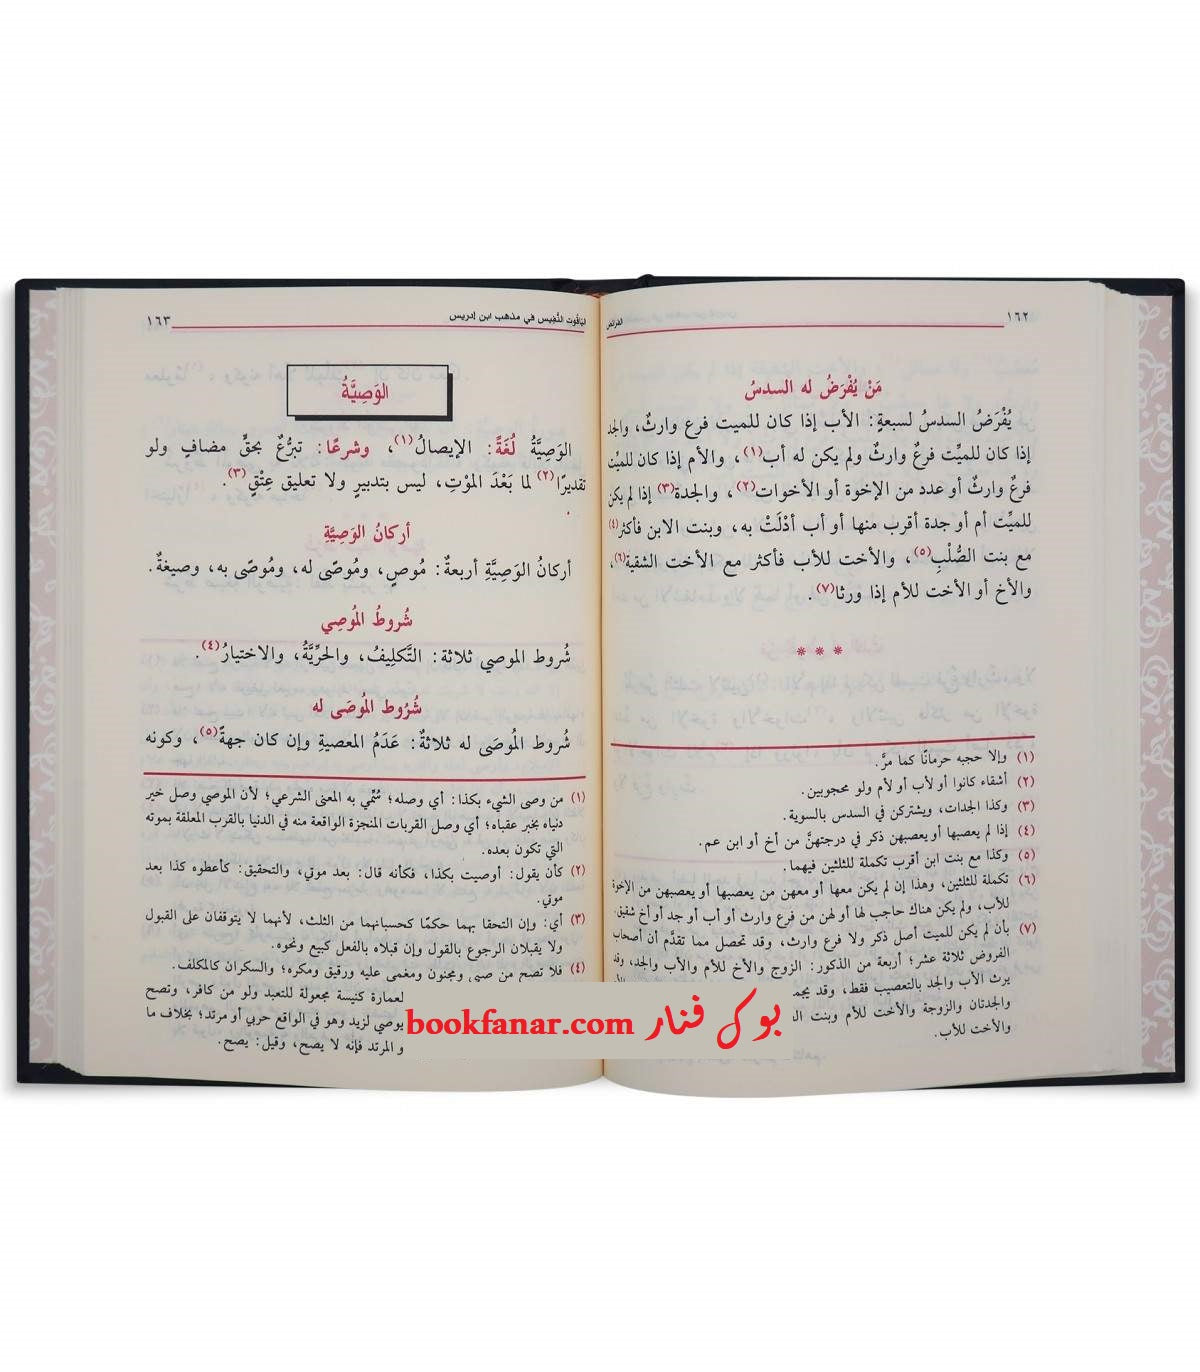 ١٦٢
الفرائض
مَنْ يُفْرَضُ له السدسُ
يُفْرَضُ السدسُ لسبعةٍ: الأب إذا كان للميت فرع وارثٌ، والجد
إذا كان للميِّت فرعٌ وارثٌ ولم يكن له أب(١)، والأم إذا كان للميِّت
فرعٌ وارثٌ أو عدد من الإخوة أو الأخوات(٢)، والجدة(٣) إذا لم يكن
للميِّت أم أو جدة أقرب منها أو أب أدْلَتْ به، وبنت الابن فأكثر(٤)
مع بنت الصُّلْبِ(٥)، والأخت للأب فأكثر مع الأخت الشقيقة(٦)،
والأخ أو الأخت للأم إذا ورثا(٧).
* * *
(١) وإلا حجبه حرمانًا كما مرَّ.
(٢) أشقاء كانوا أو لأب أو لأم ولو محجوبين.
(٣) وكذا الجدات، ويشتركن في السدس بالسوية.
(٤) إذا لم يعصبها أو يعصبهن ذكر في درجتهنَّ من أخ أو ابن عم.
(٥) وكذا مع بنت ابن أقرب تكملة للثلثين فيهما.
(٦) تكملة للثلثين، وهذا إن لم يكن معها أو معهن من يعصبها أو يعصبهن من الإخوة
للأب، ولم يكن هناك حاجب لها أو لهن من فرع وارث أو أب أو جد أو أخ شقيق.
(٧) بأن لم يكن للميت أصل ذكر ولا فرع وارث، وقد تحصل مما تقدَّم أن أصحاب
الفروض ثلاثة عشر؛ أربعة من الذكور: الزوج والأخ للأم والأب والجد، وقد
يرث الأب والجد بالتعصيب فقط، وقد يجم
والجدتان والزوجة والأخت للأم وبنت ال
والأخت للأب.
الياقوت النَّفِيس في مذهب ابن إدريس
١٦٣
الوَصِيَّةُ
الوَصِيَّةُ لُغَةً: الإيصالُ(١)، وشرعًا: تبرُّعٌ بحقٍّ مضافٍ ولو
تقديرًا(٢) لما بَعْدَ الموْتِ، ليس بتدبيرٍ ولا تعليق عِتْقٍ(٣).
أركانُ الوَصِيَّةِ
أركانُ الوَصِيَّةِ أربعةٌ: مُوصٍ، ومُوصًى له، ومُوصًى به، وصيغةٌ.
شُروطُ المُوصِي
شُروط الموصي ثلاثة: التَّكلِيفُ، والحرِّيَّةُ، والاختيارُ(٤).
شُرُوط المُوصَى له
شُروط المُوصَى له ثلاثةٌ: عَدَمُ المعصيةِ وإن كان جهةً(٥)، وكونه
(١) من وصى الشيء بكذا: أي وصله؛ سُمِّي به المعنى الشرعي؛ لأن الموصي وصل خير
دنياه بخير عقباه؛ أي وصل القربات المنجزة الواقعة منه في الدنيا بالقرب المعلقة بموته
التي تكون بعده.
(٢) كأن يقول: أوصيت بكذا، فكأنه قال: بعد موتي، والتحقيق: كأعطوه كذا بعد
موتي.
(٣) أي: وإن التحقا بهما حكمًا كحسبانهما من الثلث، لأنهما لا يتوقفان على القبول
ولا يقبلان الرجوع بالقول وإن قبلاه بالفعل كبيع ونحوه.
(٤) فلا تصح من صبي ومجنون ومغمى عليه ورقيق ومكره؛ والسكران كالمكلف.
لعمارة كنيسة مجعولة للتعبد ولو من كافر، وتصح
يوصي لزيد وهو في الواقع حربي أو مرتد؛ بخلاف ما
و المرتد فإنه لا يصح، وقيل: يصح.
بوك فنار bookfanar.com